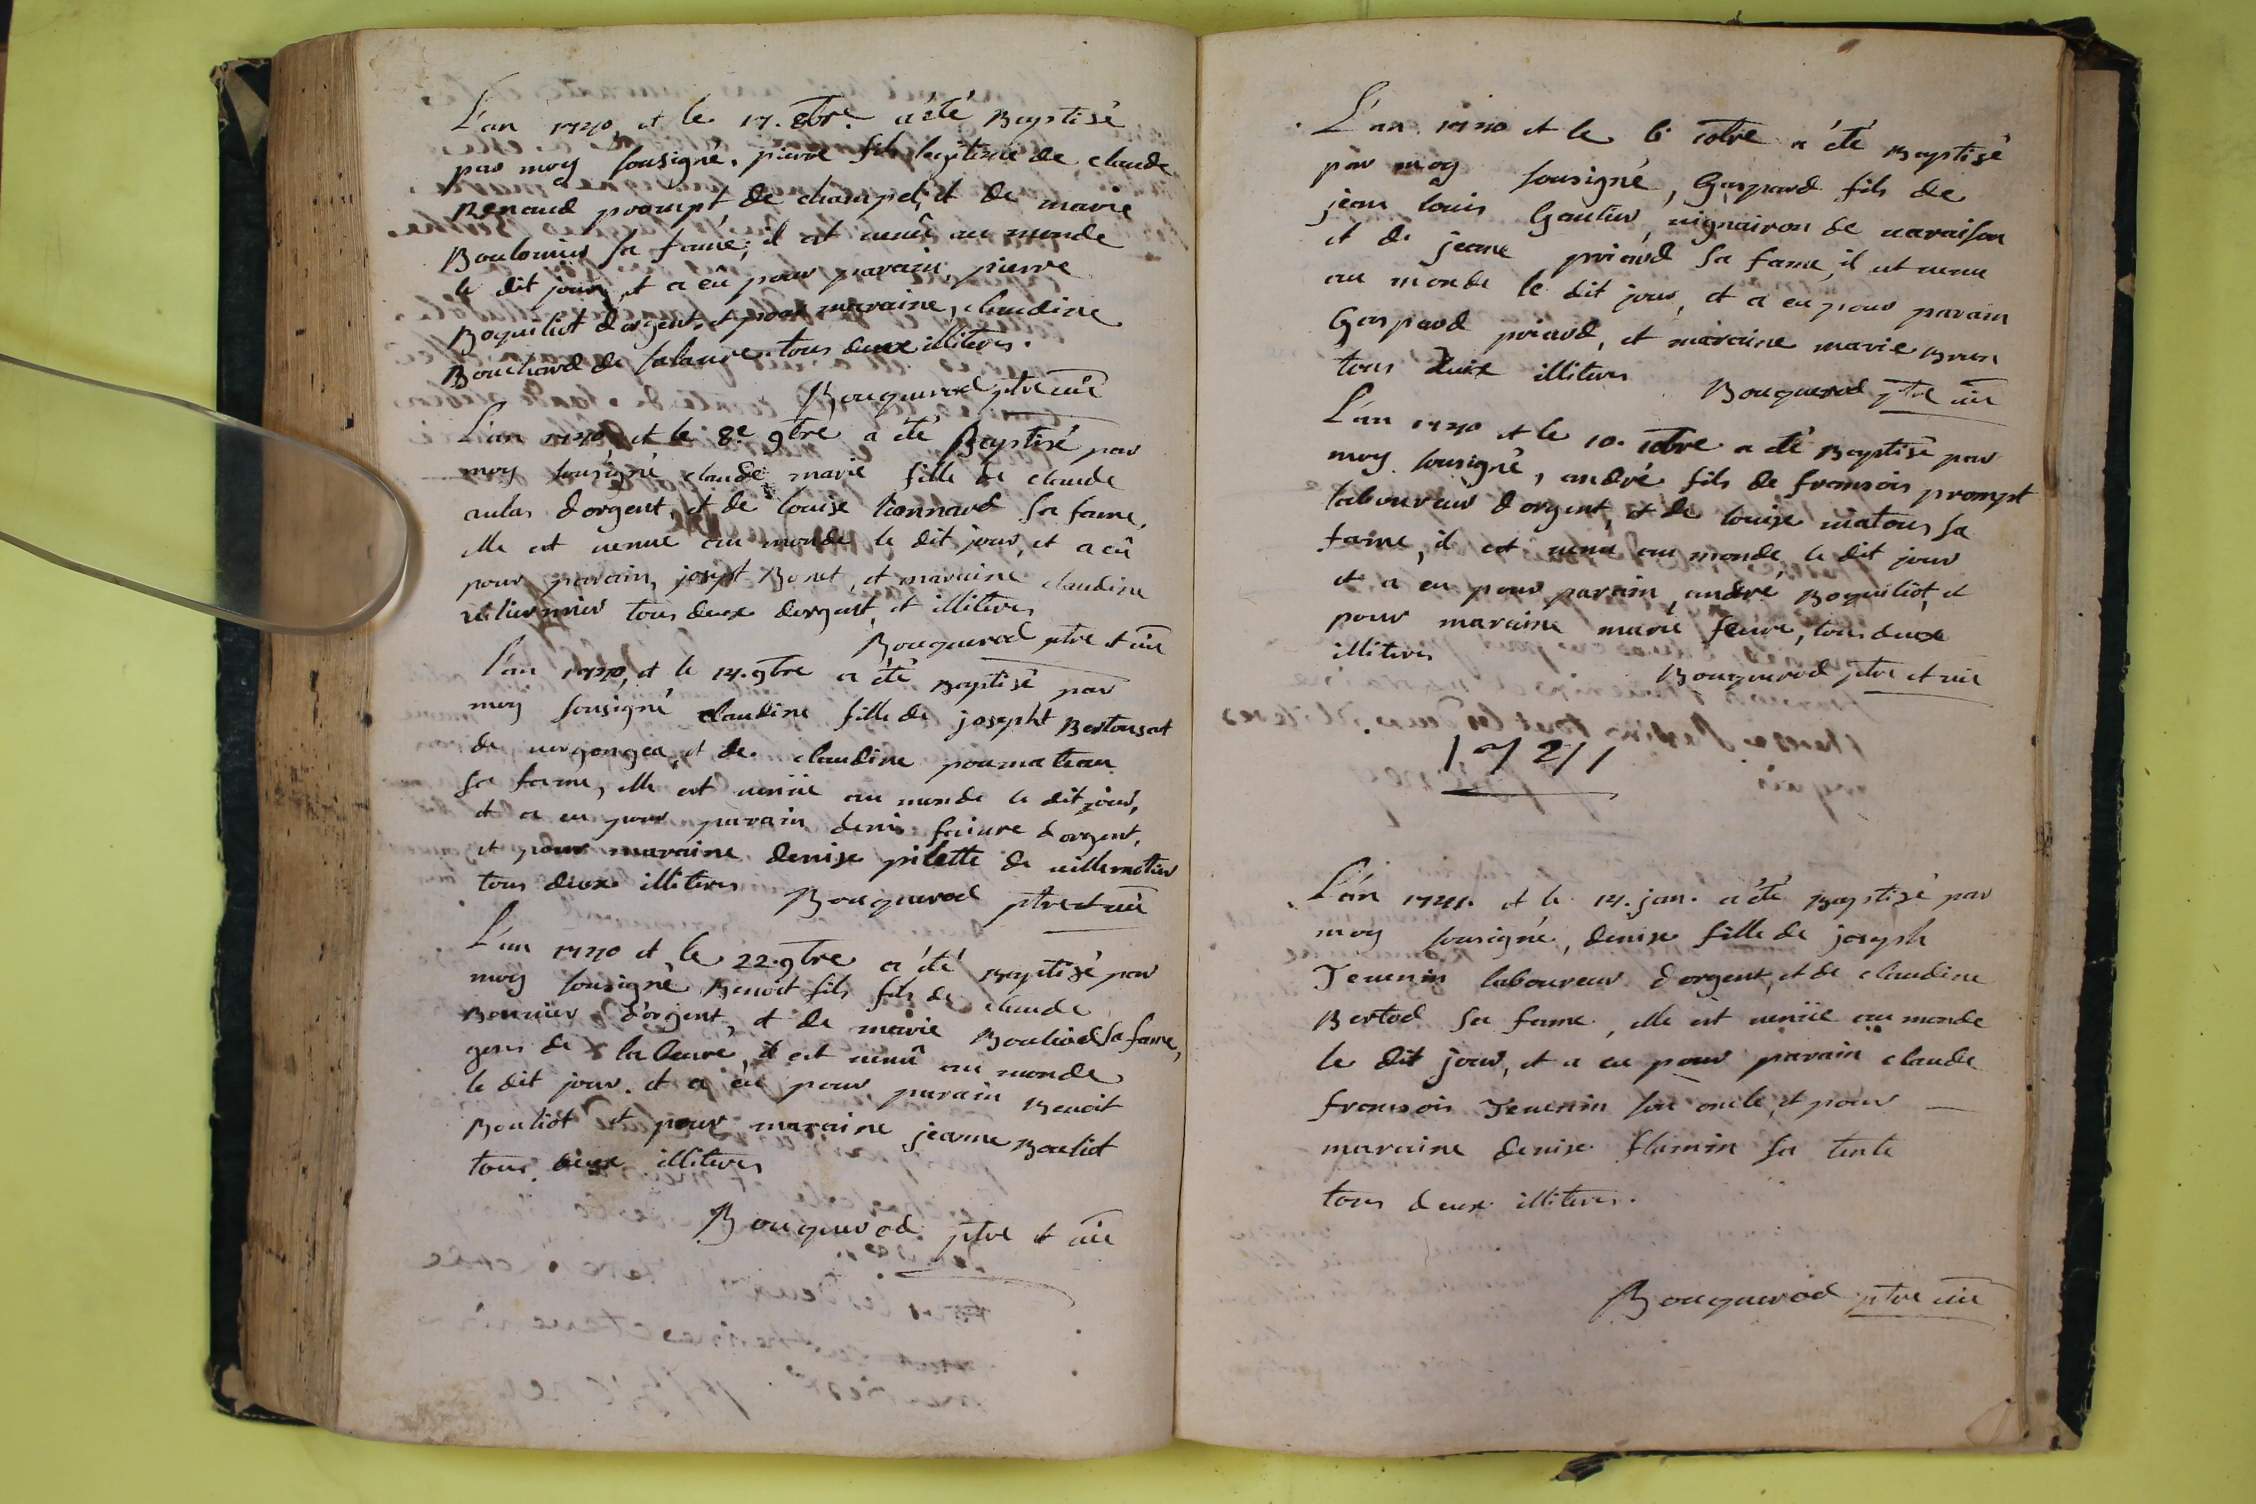 L'an 1740 et le 17. 8bre. a été Baptisé
par moy sousigné, pierre fils legitime de claude
Renaud prompt de champel, et de marie
Boulomier sa fame; il est venû au monde
le dit jour, et a eû pour parain, pierre
Boquiliot d'orgent, et pour maraine, claudine
Bouchard de salavre tous deux illiteres.
Bouquerod ptre cûré
L'an 1740, et le 8e 9bre a été Baptisé par
moy sousigné claude marie fille de claude
aulas d'orgent, et de louise Lionnard sa fame,
elle est venue au monde le dit jour, et a eû
pour parain, josept Bonet, et maraine claudine
tous deux dorgent, et illiteres
Bouquerod ptre et cûré
L'an 1740, et le 14. 9bre a été Baptisé par
moy sousigné claudine fille de josepht
de vergongea, et de claudine
sa fame, elle est venüe au monde le dit jour,
et a eu pour parain denis faivre d'orgent,
et pour maraine denise pilette de villemotier
tous deux illiteres Bouquerod ptre et cûré
L'an 1740 et le 22. 9bre a été Baptizé par
moy sousigné Benoit fils fils de claude
Bonnier d'orgent, et de marie Bouliod sa fame,
gens de labeure, il est venû au monde
le dit jour, et a eu pour parain Benoit
Bouliot et pour maraine jeanne Bouliot
tous deux illiteres
Bouquerod ptre et cûré
L'an 1740 et le 6 10bre a été Baptisé
par moy sousigné, Gaspard fils de
jean louis Gautier, vignairon de varaison
et de jeane priard sa fame, il est venu
au monde le dit jour, et a eu pour parain
Gaspard priard, et maraine marie Brun
tous deux illiteres Bouquerod ptre cûré
L'an 1740 et le 10. 10bre a été Baptisé par
moy sousigné, andré fils de fransois prompt
laboureur d'orgent, et de louise matous sa
fame, il est venu au monde, le dit jour
et a eu pour parain, andré Boquiliot, et
pour maraine marie fevre, tous deux
illiteres Bouquerod ptre et cûré
1741
L'an 1741. et le 14. jan. a été Baptizé par
moy sousigné, denise fille de joseph
Tevenin laboureur d'orgent, et de claudine
Bertod sa fame, elle est venüe au monde
le dit jour, et a eu pour parain claude
fransois Tevenin son oncle, et pour
maraine denise flamin sa tente
tous deux illiteres.
Bouquerod ptre cûré